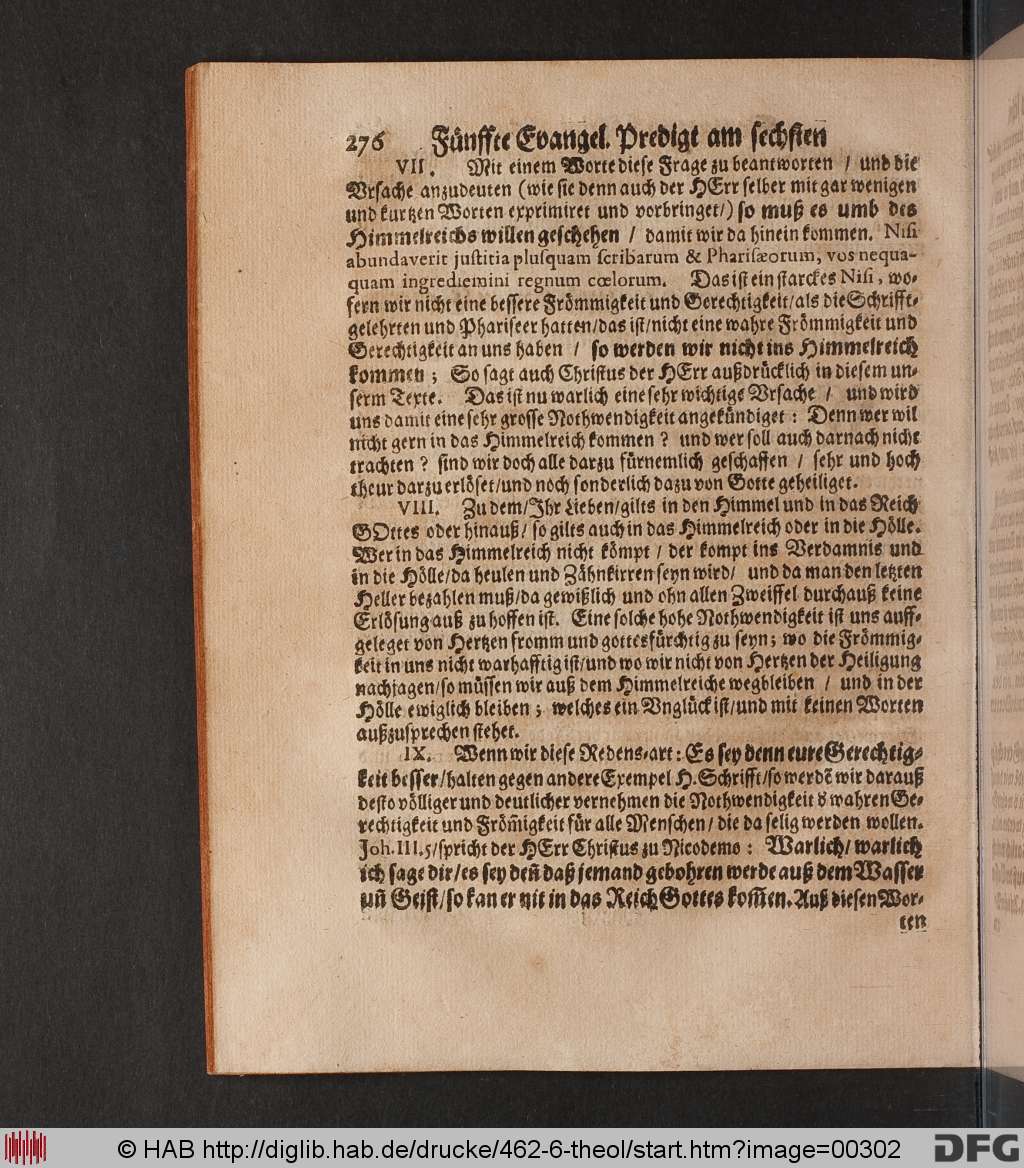 276 Fünffte Evangel. Predigt am sechsten
VII. Mit einem Worte diese Frage zu beantworten / und die
Vrsache anzudeuten (wie sie denn auch der HErr selber mit gar wenigen
und kurtzen Worten exprimiret und vorbringet/) so muß es umb des
Himmelreichs willen geschehen / damit wir da hinein kommen. Nisi
abundaverit justitia plusquam scribarum & Pharisæorum, vos nequa-
quam ingrediemini regnum cœlorum. Das ist ein starckes Nisi, wo-
fern wir nicht eine bessere Frömmigkeit und Gerechtigkeit/als die Schrifft-
gelehrten und Phariseer hatten/das ist/nicht eine wahre Frömmigkeit und
Gerechtigkeit an uns haben / so werden wir nicht ins Himmelreich
kommen; So sagt auch Christus der HErr außdrücklich in diesem un-
serm Texte. Das ist nu warlich eine sehr wichtige Vrsache / und wird
uns damit eine sehr grosse Nothwendigkeit angekündiget: Denn wer wil
nicht gern in das Himmelreich kommen? und wer soll auch darnach nicht
trachten? sind wir doch alle darzu fürnemlich geschaffen / sehr und hoch
theur darzu erlöset/und noch sonderlich dazu von Gotte geheiliget.
VIII. Zu dem/Ihr Lieben/gilts in den Himmel und in das Reich
GOttes oder hinauß/ so gilts auch in das Himmelreich oder in die Hölle.
Wer in das Himmelreich nicht kömpt / der kompt ins Verdamnis und
in die Hölle/da heulen und Zähnkirren seyn wird/ und da man den letzten
Heller bezahlen muß/da gewißlich und ohn allen Zweiffel durchauß keine
Erlösung auß zu hoffen ist. Eine solche hohe Nothwendigkeit ist uns auff-
geleget von Hertzen fromm und gottesfürchtig zu seyn; wo die Frömmig-
keit in uns nicht warhafftig ist/und wo wir nicht von Hertzen der Heiligung
nachjagen/so müssen wir auß dem Himmelreiche wegbleiben / und in der
Hölle ewiglich bleiben; welches ein Vnglück ist/und mit keinen Worten
außzusprechen stehet.
IX. Wenn wir diese Redens-art: Es sey denn eure Gerechtig-
keit besser/halten gegen andere Exempel H. Schrifft/so werdē wir darauß
desto völliger und deutlicher vernehmen die Nothwendigkeit d wahren Ge-
rechtigkeit und From̄igkeit für alle Menschen/ die da selig werden wollen.
Joh. III. 5/spricht der HErr Christus zu Nicodemo: Warlich/ warlich
ich sage dir/es sey deñ daß jemand gebohren werde auß dem Wasser
uñ Geist/so kan er nit in das Reich Gottes kom̄en. Auß diesen Wor-
ten
© HAB http://diglib.hab.de/drucke/462-6-theol/start.htm?image=00302
DFG